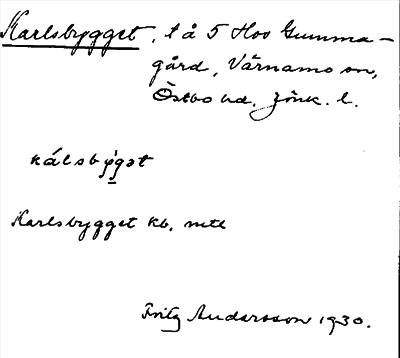 Karlsbygget, t å 5 Hoo Gumma-
gård, Värnamo sn,
Östbo hd. Jönk. l.
kálsbýgət
Karlsbygget kb, mtl
Fritz Andersson 1930.